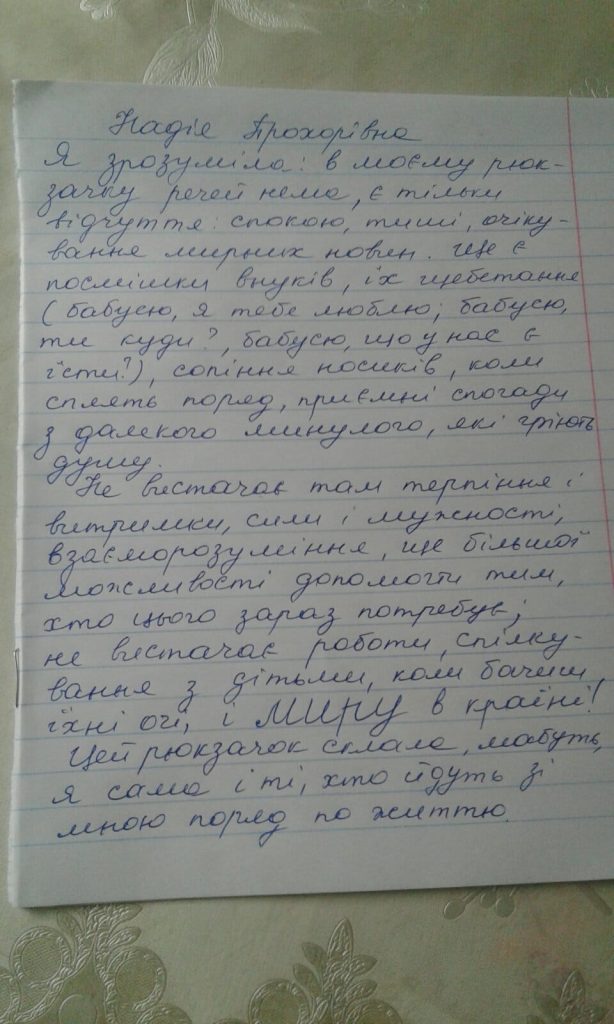 Надія Прохорівна
Я зрозуміла: в моєму рюк-
зачку речей нема, є тільки
відчуття: спокою, тиші, очіку-
вання мирних новин. Ще є
посмішки внуків, їх щебетання
(бабусю, я тебе люблю; бабусю,
ти куди?, бабусю, що у нас є
їсти?), сопіння носиків, коли
сплять поряд, приємні спогади
з далекого минулого, які гріють
душу.
Не вистачає там терпіння і
витримки, сили і мужності,
взаєморозуміння, ще більшої
можливості допомогти тим,
хто цього зараз потребує;
не вистачає роботи, спілку-
вання з дітьми, коли бачиш
їхні очі, і МИРУ в країні!
Цей рюкзачок склала, мабуть,
я сама і ті, хто йдуть зі
мною поряд по життю.